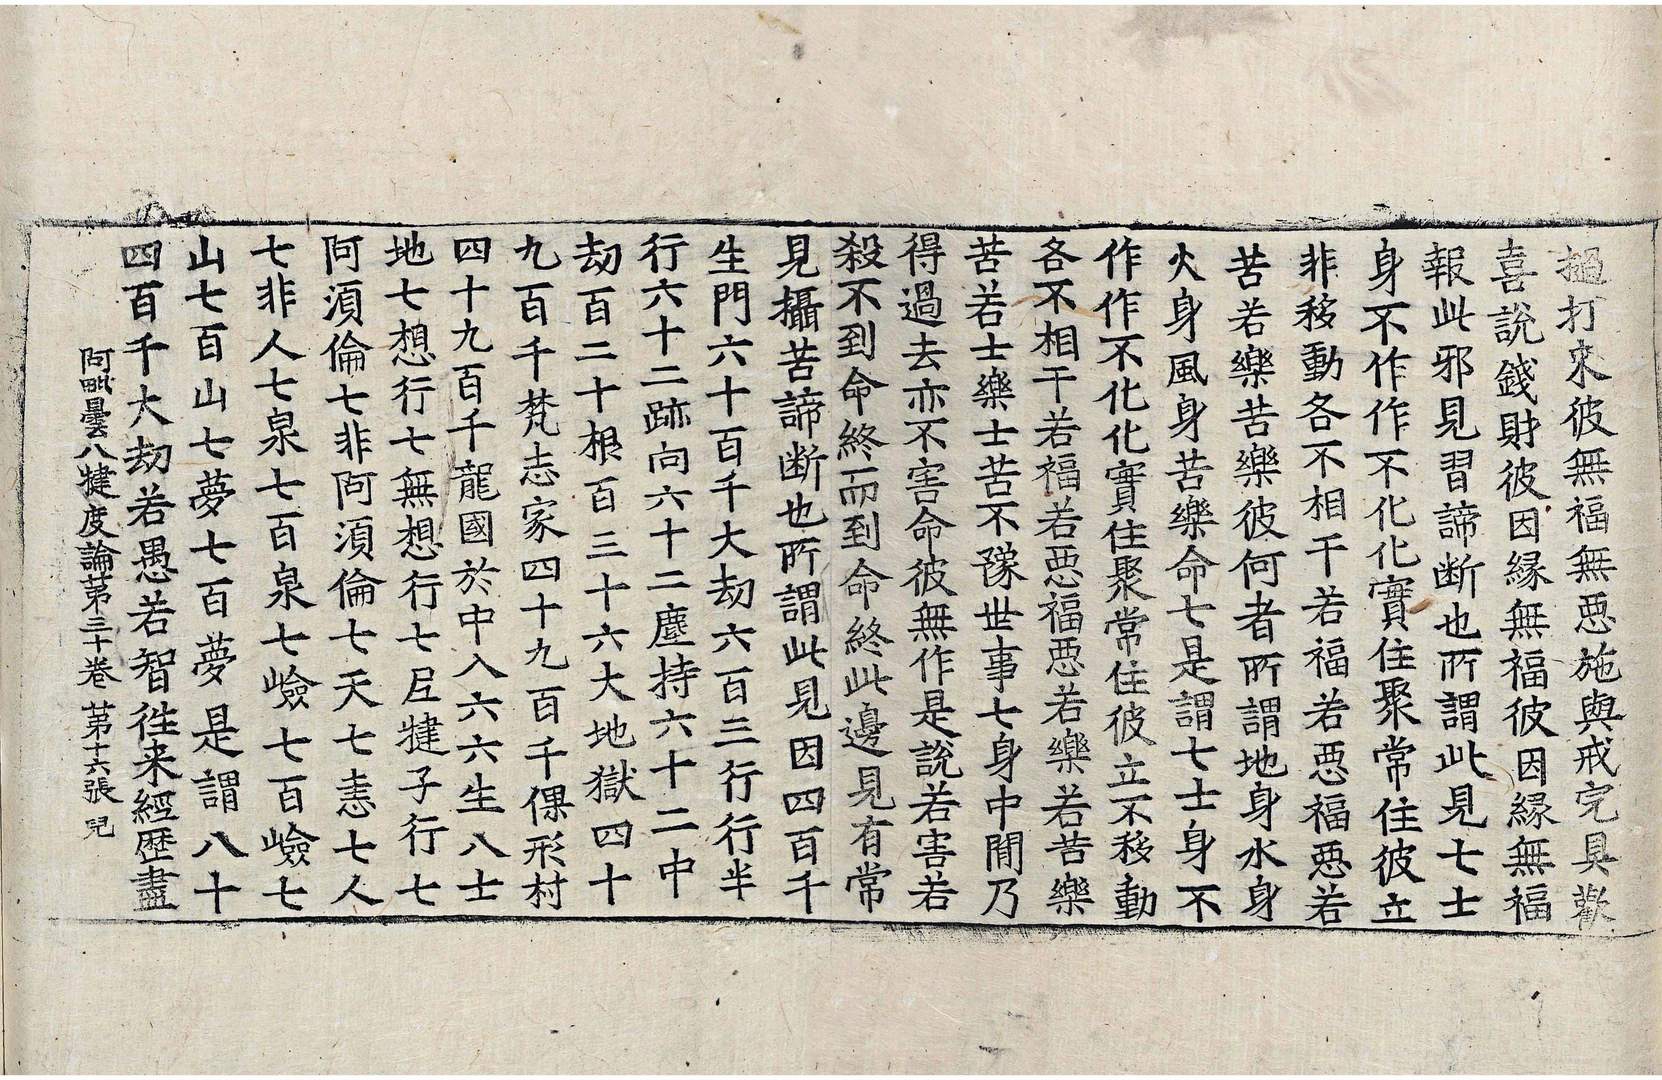 撾打来彼無福無惡施與戒完具歡
喜說錢財彼因緣無福彼因緣無福
報此邪見習諦断也所謂此見七士
身不作作不化化實住聚常住彼立
非移動各不相干若福若惡福惡若
苦若樂苦樂彼何者所謂地身水身
火身風身苦樂命七是謂七士身不
作作不化化實住聚常住彼立不移動
各不相干若福若惡福惡若樂若苦樂
苦若士樂士苦不豫世事七身中間乃
得過去亦不害命彼無作是說若害若
殺不到命終而到命終此邊見有常
見攝苦諦断也所謂此見因四百千
生門六十百千大劫六百三行行半
行六十二跡向六十二塵持六十二中
劫百二十根百三十六大地獄四十
九百千梵志家四十九百千倮形村
四十九百千龍國於中入六六生八士
地七想行七無想行七尼犍子行七
阿湏倫七非阿湏倫七天七恚七人
七非人七泉七百泉七嶮七百嶮七
山七百山七夢七百夢是謂八十
四百千大劫若愚若智往来經歷盡
阿毗曇八犍度論第三十卷 第十六張 兒